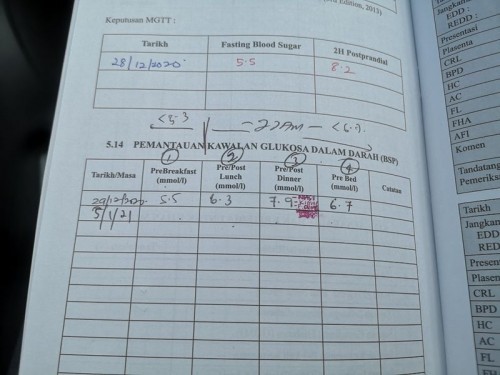 Edition, 2013)
Keputusan MGTT :
Tarikh Fasting Blood Sugar 2H Postprandial
28/12/2020 5.5 8.2
<5.3
5.14 PEMANTAUAN KAWALAN GLUKOSA DALAM DARAH (BSP)
1 2 3 4
Tarikh/Masa PreBreakfast (mmol/l) Pre/Post Lunch (mmol/l) Pre/Post Dinner (mmol/l) Pre Bed (mmol/l) Catatan
29/12/2020 5.5 6.3 7.9 6.7
5/1/21
Jangkaan
EDD :
REDD :
Presentasi
Plasenta
CRL
BPD
HC
AC
FL
FHA
AFI
Komen
Tandatang
Pemeriksa
Tarikh
Jangkaan
EDD
REDD
Presen
Plasen
CRL
BPD
HC
AC
FL
FHA